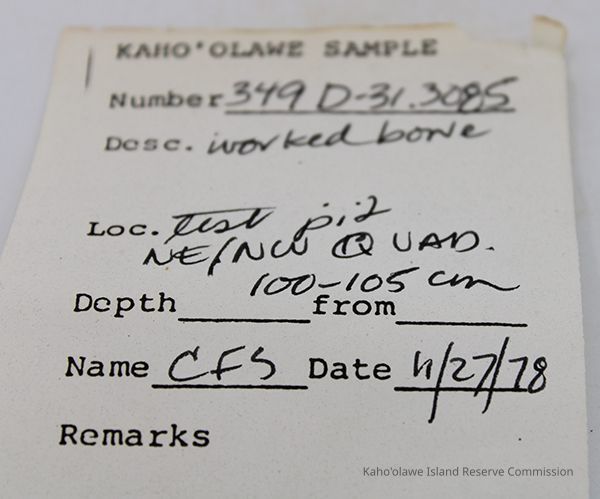 KAHO'OLAWE SAMPLE
Number 349 D-31.3085
Desc. worked bone
Loc. test pit
NE/NW QUAD.
100-105 cm
Depth from
Name CFS Date 11/27/78
Remarks
Kaho'olawe Island Reserve Commission